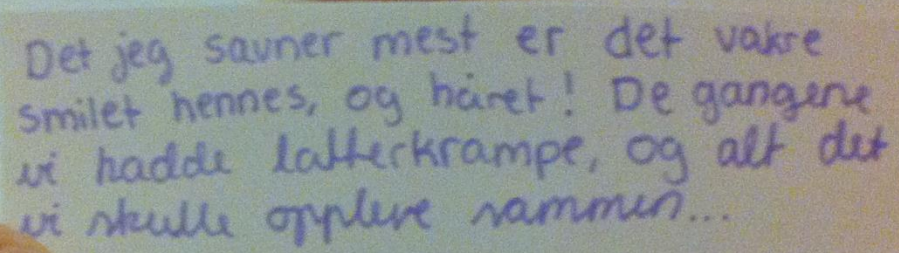 Det jeg savner mest er det vakre
smilet hennes, og håret! De gangene
vi hadde latterkrampe, og alt det
vi skulle oppleve sammen...